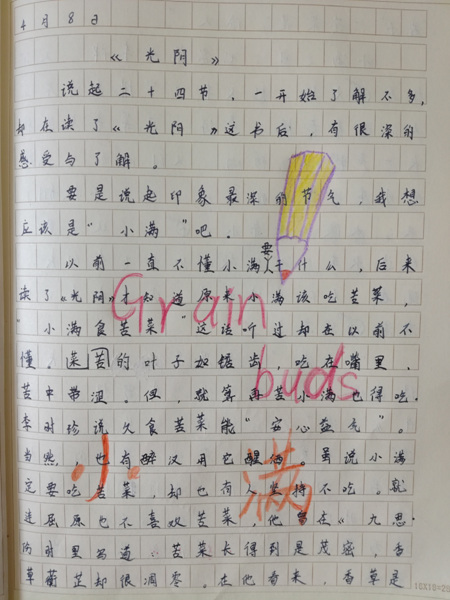 4月8日
《光阴》
说起二十四节,一开始了解不多,
却在读了《光阴》这书后,有很深的
感受与了解。
要是说起印象最深的节气,我想
应该是“小满”吧。
以前一直不懂小满要干什么,后来
读了《光阴》才知道原来小满该吃苦菜,
“小满食苦菜”这话听过却在以前不
懂。菜苦的叶子如锯齿,吃在嘴里,
苦中带涩。但,就算再苦小满也得吃.
李时珍说久食苦菜能“安心益气”。
当然,也有醉汉用它醒酒。虽说小满
定要吃苦菜,却也有人坚持不吃。就
连屈原也不喜欢苦菜,他曾在《九思·
伤时里写道:苦菜长得到是茂密,香
草蘅芷却很凋零。在他看来,香草是
Grain
buds
小满